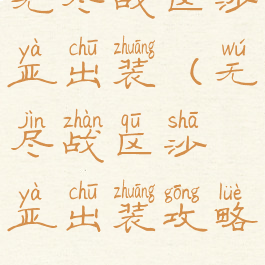 无尽战区沙
yà chū zhuāng wú
亚出装（无
jìn zhàn qū shā
尽战区沙
yà chū zhuāng gōng lüè
亚出装攻略